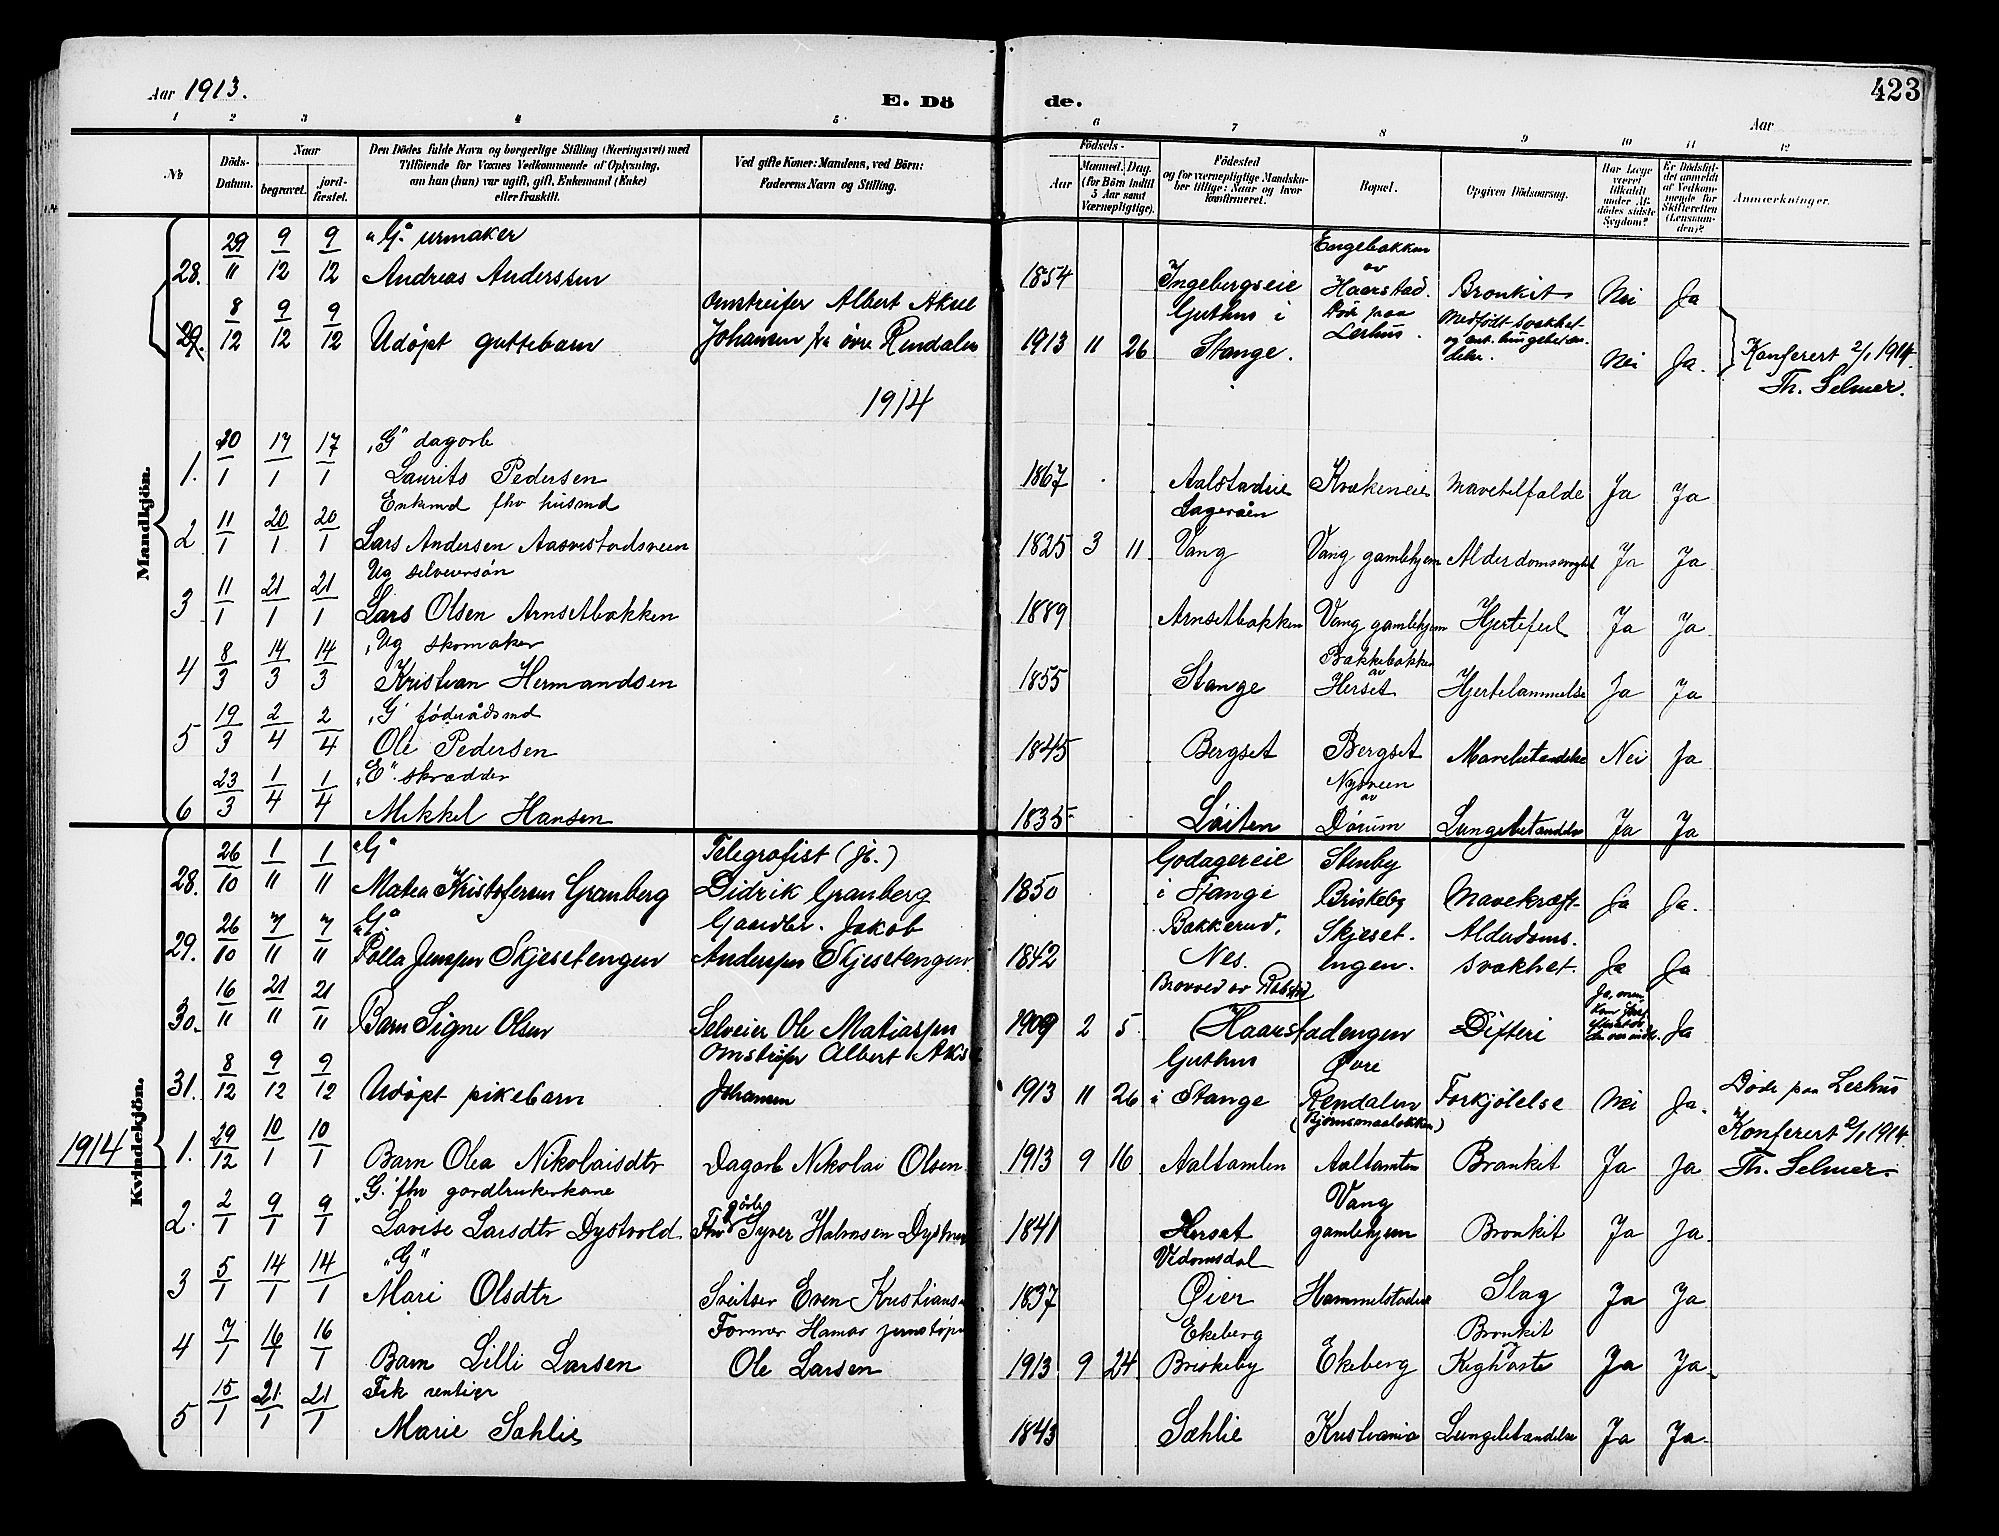 Aar 1913.
E. Dö
de.
423
Aar
1 2 3 4 5 6 7 8 9 10 11 12
No
Döds-Datum.
Naar
begravet.
jord-fæstet.
Den Dödes fulde Navn og borgerlige Stilling (Næringsvei) med
Tilföiende for Voxnes Vedkommende af Oplysning,
om han (hun) var ugift, gift, Enkemand (Enke)
eller fraskilt.
Ved gifte Koner: Mandens, ved Börn:
Faderens Navn og Stilling.
Födsels-
Aar
Maaned. Dag.
(for Börn indtil
5 Aar samt
Værnepligtige).
Födested
og for værnepligtige Mandska-
ber tillige: Naar og hvor
konfirmeret.
Bopæl.
Opgiven Dödsaarsag.
Har Læge
været
tilkaldt
under Af-
dödes sidste
Sygdom?
Er Dödsfal-
det anmeldt
af Vedkom-
mende for
Skifteretten
(Lensman-
den)?
Anmærkninger.
Mandkjön.
28. 29/11 9/12 9/12 "G." urmaker
Andreas Anderssen 1854 Ingebergseie Engebakken av Haarstad. Bronkit Nei Ja
29. 8/12 9/12 9/12 Udöpt guttebarn Omstreifer Albert Aksel
Johansen fra övre Rendalen 1913 11 26 Guthus i Stange. Död paa Lerhus. Medfödt svakhet Nei Ja. Konferert 2/1 1914.
Th. Selmer.
1914
1. 10/1 17/1 17/1 "G" dagarb
Laurits Pedersen 1867 Aalstadeie Krækeneie Mavetilfælde Ja Ja
2 11/1 20/1 20/1 Enkemd fhv husmd
Lars Andersen Aasvestadsveen 1825 3 11 Vang Vang gamlehjem Alderdomssvaghet Ja Ja
3 11/1 21/1 21/1 Ug selveiersön
Lars Olsen Arnsetbakken 1889 Arnsetbakken Vang gamlehjem Hjertefeil Ja Ja
4 8/3 14/3 14/3 "Ug skomaker
Kristian Hermandsen 1855 Stange Bakkebakken av Herset Hjertelammelse Ja Ja
5 19/3 2/4 2/4 "G" föderådsmd
Ole Pedersen 1845 Bergset Bergset Mavebetændelse Nei Ja
6 23/3 1/4 1/4 "E" skrædder
Mikkel Hansen 1835 Löiten Nyveen av Dörum Lungebetændelse Ja Ja
Kvindekjön.
28. 26/10 1/11 1/11 "G"
Matea Kristofersen Granberg Telegrafist (Jb.)
Didrik Granberg 1850 Godagereie i Stange Stenby Briskeby Mavekræft Ja Ja.
29. 26/10 7/11 7/11 "G"
Polla Jenspen Skjesetengen Gaardbr. Jakob
Anderspen Skjesetengen. 1842 Bakkerud, Nes. Skjeset-engen. Alderdoms-svakhet. Ja Ja
30. 16/11 21/11 21/11 Barn Signe Olsen Selveier Ole Matiaspen 1909 2 5. Brovved av Rabstad Haarstadengen Difteri Ja, men Ja
31. 8/12 9/12 9/12 Udöpt pikebarn Omstreifer Albert Aksel
Johansen 1913 11 26 Guthus i Stange Øvre Rendalen Forkjölelse Nei Ja. Döde paa Lerhus
Konferert 2/1 1914.
Th. Selmer.
1914
1. 29/12 10/1 10/1 Barn Olea Nikolaisdtr Dagarb Nikolai Olsen 1913 9 16 Aaltamten (Bjönsonaalökken) Aaltamten Bronkit Ja Ja
2. 2/1 9/1 9/1 "G." fhv gardbrukerkone
Lovise Larsdtr Dystvold Fhv gårbr Syver Halvorsen 1841 Herset Vang gamlehjem Bronkit Ja Ja.
3 5/1 14/1 14/1 "G"
Mari Olsdtr Sveitser Even Kristians 1837 Vedomsdal Øier Hammelstadeie Slag Ja Ja
4 7/1 16/1 16/1 Barn Lilli Larsen Former Hamar jernstöp
Ole Larsen 1913 9 24 Ekeberg Briskeby Ekeberg Bronkit Kighoste Ja Ja.
5 15/1 21/1 21/1 Frk rentier
Marie Sæhlie 1843 Sæhlie Kristiania Lungebetændelse Ja Ja.